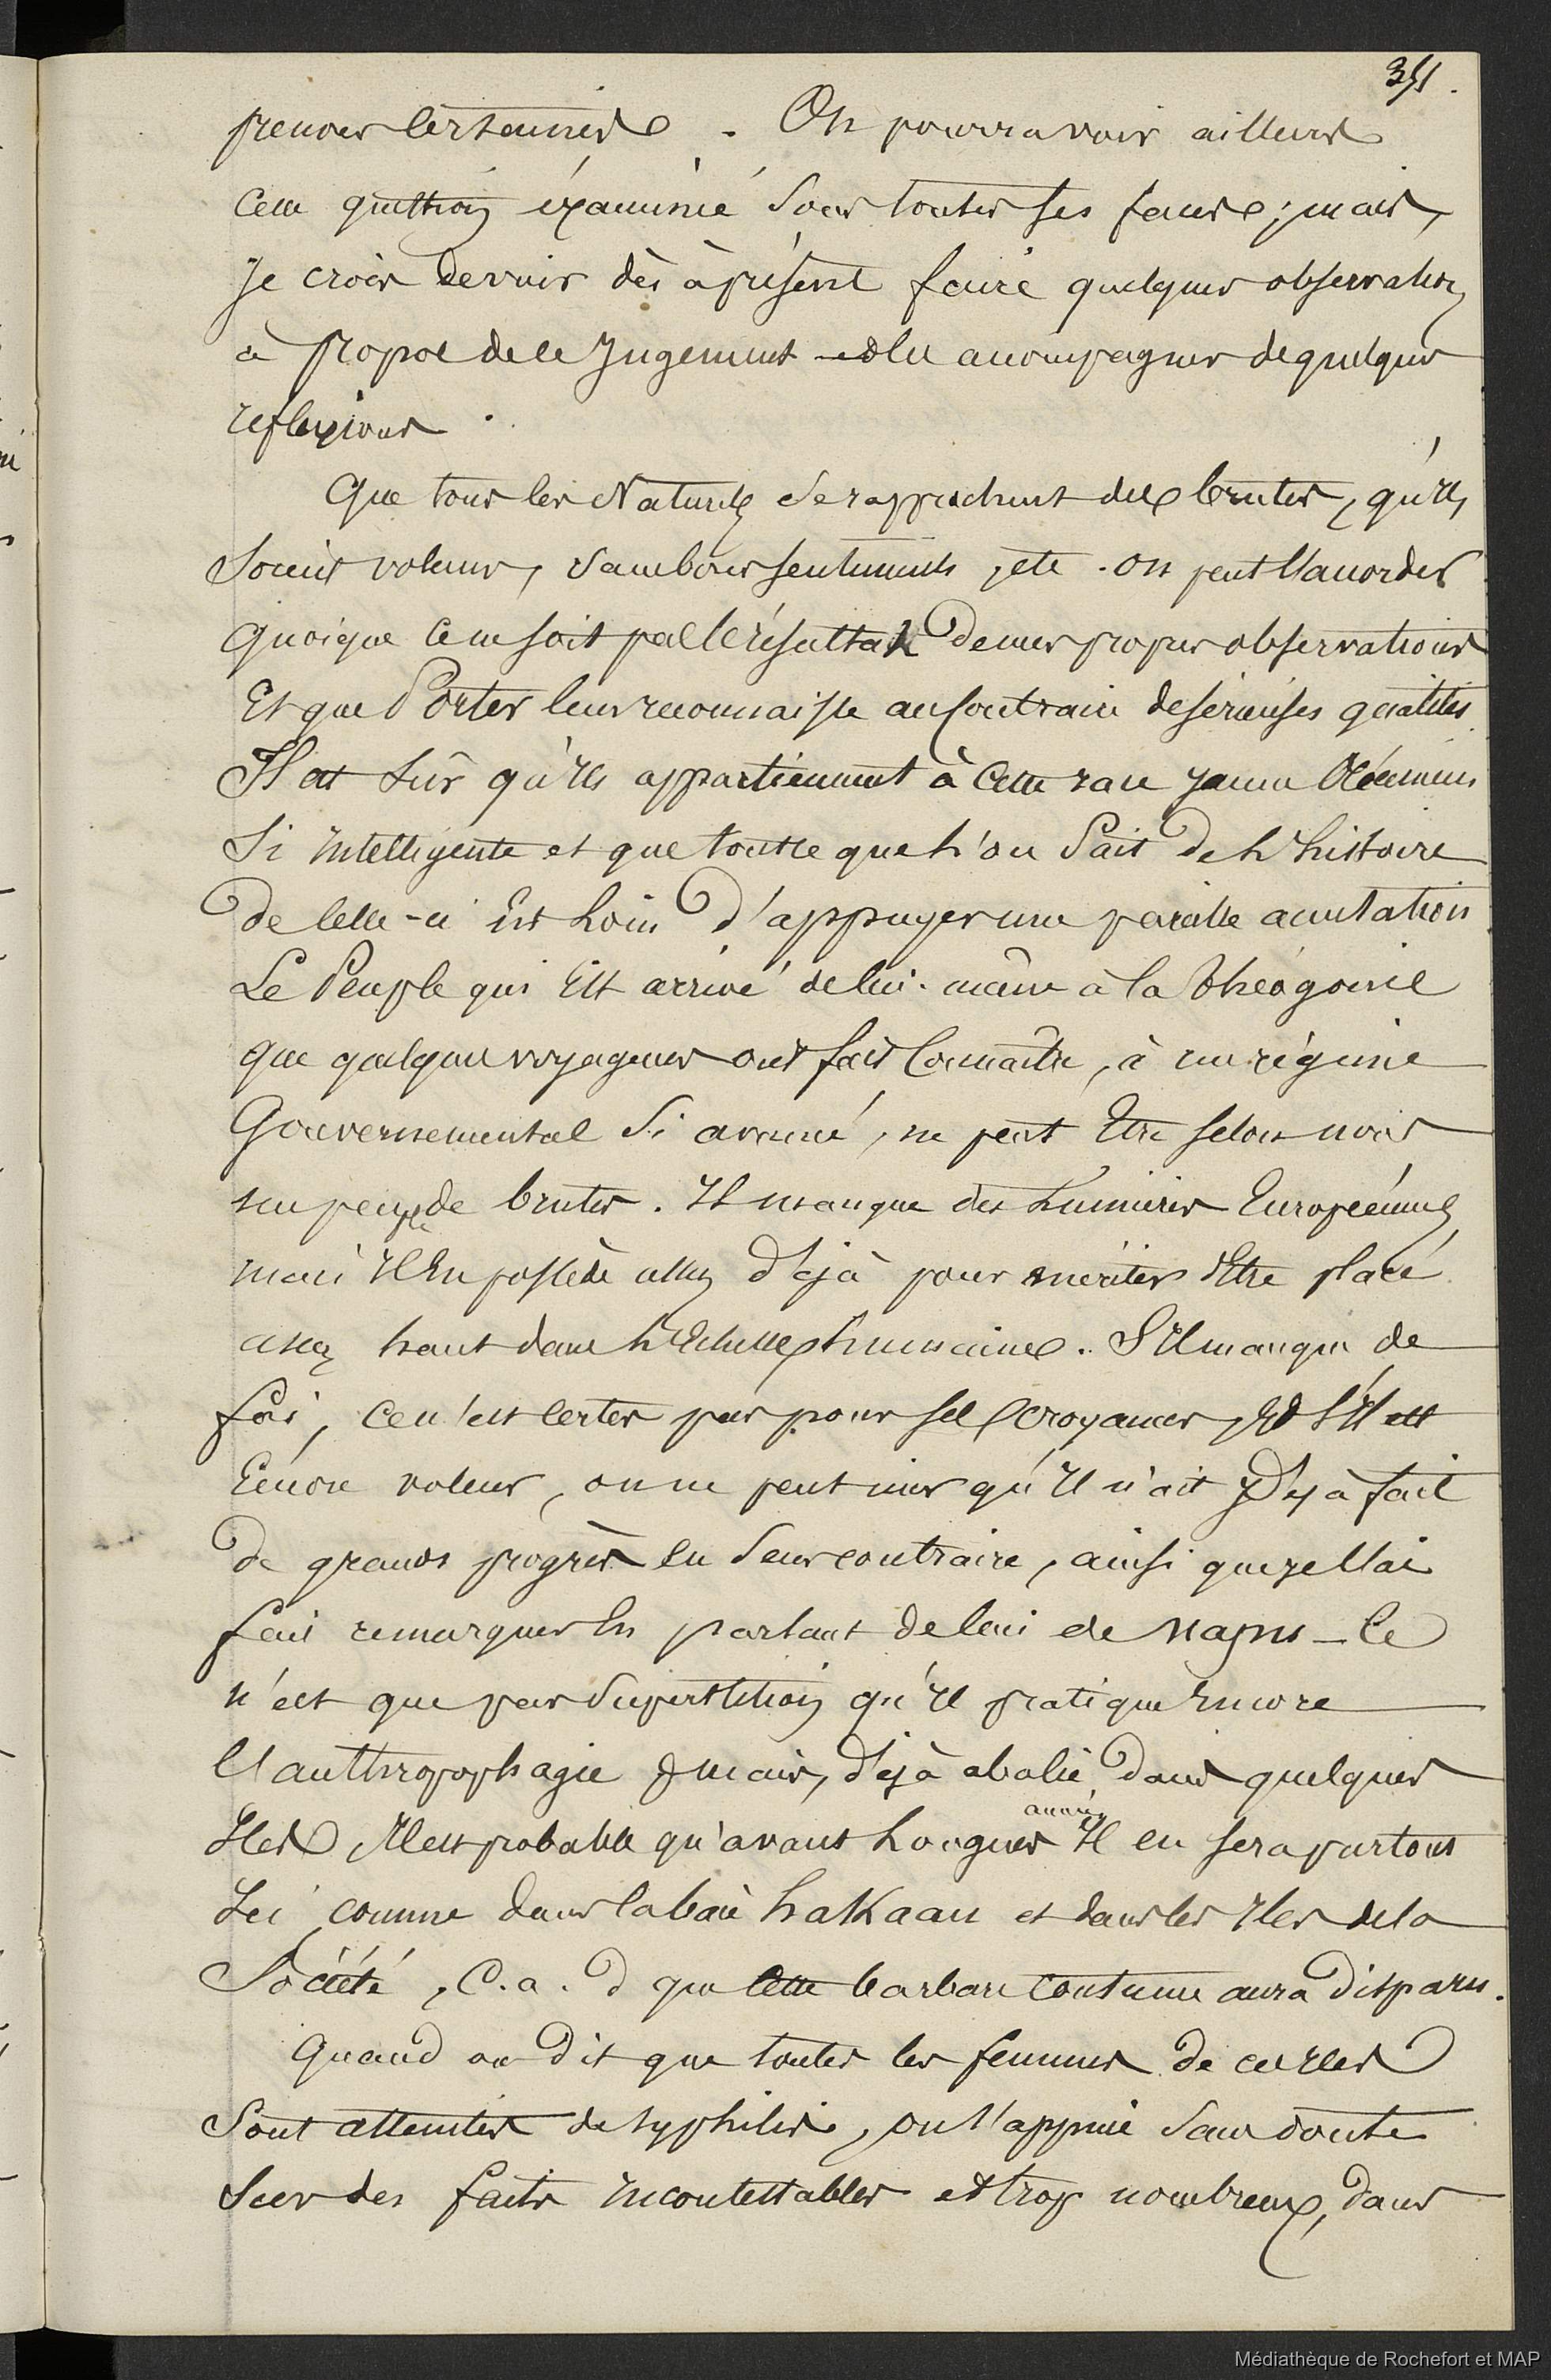 351.
preuves certaines. On pourra voir ailleurs
cette question éxaminée sous toutes ses faces; mais,
Je crois devoir dès à présent faire quelques observations
à propos de ce Jugement et le accompagner de quelques
réflexions.
Que tous les Naturels se rapprochent des brutes, qu'ils
soient voleurs, sans bons sentiments, etc. on peut l'accorder
quoique ce ne soit pas le résultat de mes propres observations
Et que Porter leur reconnaisse au contraire de sérieuses qualités.
Il est sûr qu'ils appartiennent à cette race jaune Océanienne
si intelligente et que tout ce que l'on sait de l'histoire
de celle-ci est loin d'appuyer une pareille accusation
Le Peuple qui Est arrivé de lui-même à la théogonie
que quelques voyageurs ont fait connaitre, à un régime
Gouvernemental si avancé, ne peut Etre selon moi
un peuple de brutes. Il manque des lumières Européennes
mais Il En possède assez déjà pour mériter d'Etre placé
assez haut dans l'Echelle humaine. S'Il manque de
foi, ce n'est certes pas pour ses croyances, Et s'Il est
Encore voleur, on ne peut nier qu'Il n'ait Déjà fait
de grands progrès en sens contraire, ainsi que je l'ai
fait remarquer En parlant de lui et de Mapu - Ce
n'est que par superstition qu'Il pratique Encore
l'anthropophagie & mais, déjà abolie dans quelques
Iles Il est probable qu'avant longues années Il en sera partout
Ici comme dans la baie hakaau et dans les Iles de la
Société, C.a.d que cette barbare coutume aura disparu.
Quand on dit que toutes les femmes de ces Iles
sont atteintes de syphilis, on s'appuie sans doute
sur des faits incontestables et trop nombreux, dans
Médiathèque de Rochefort et MAP